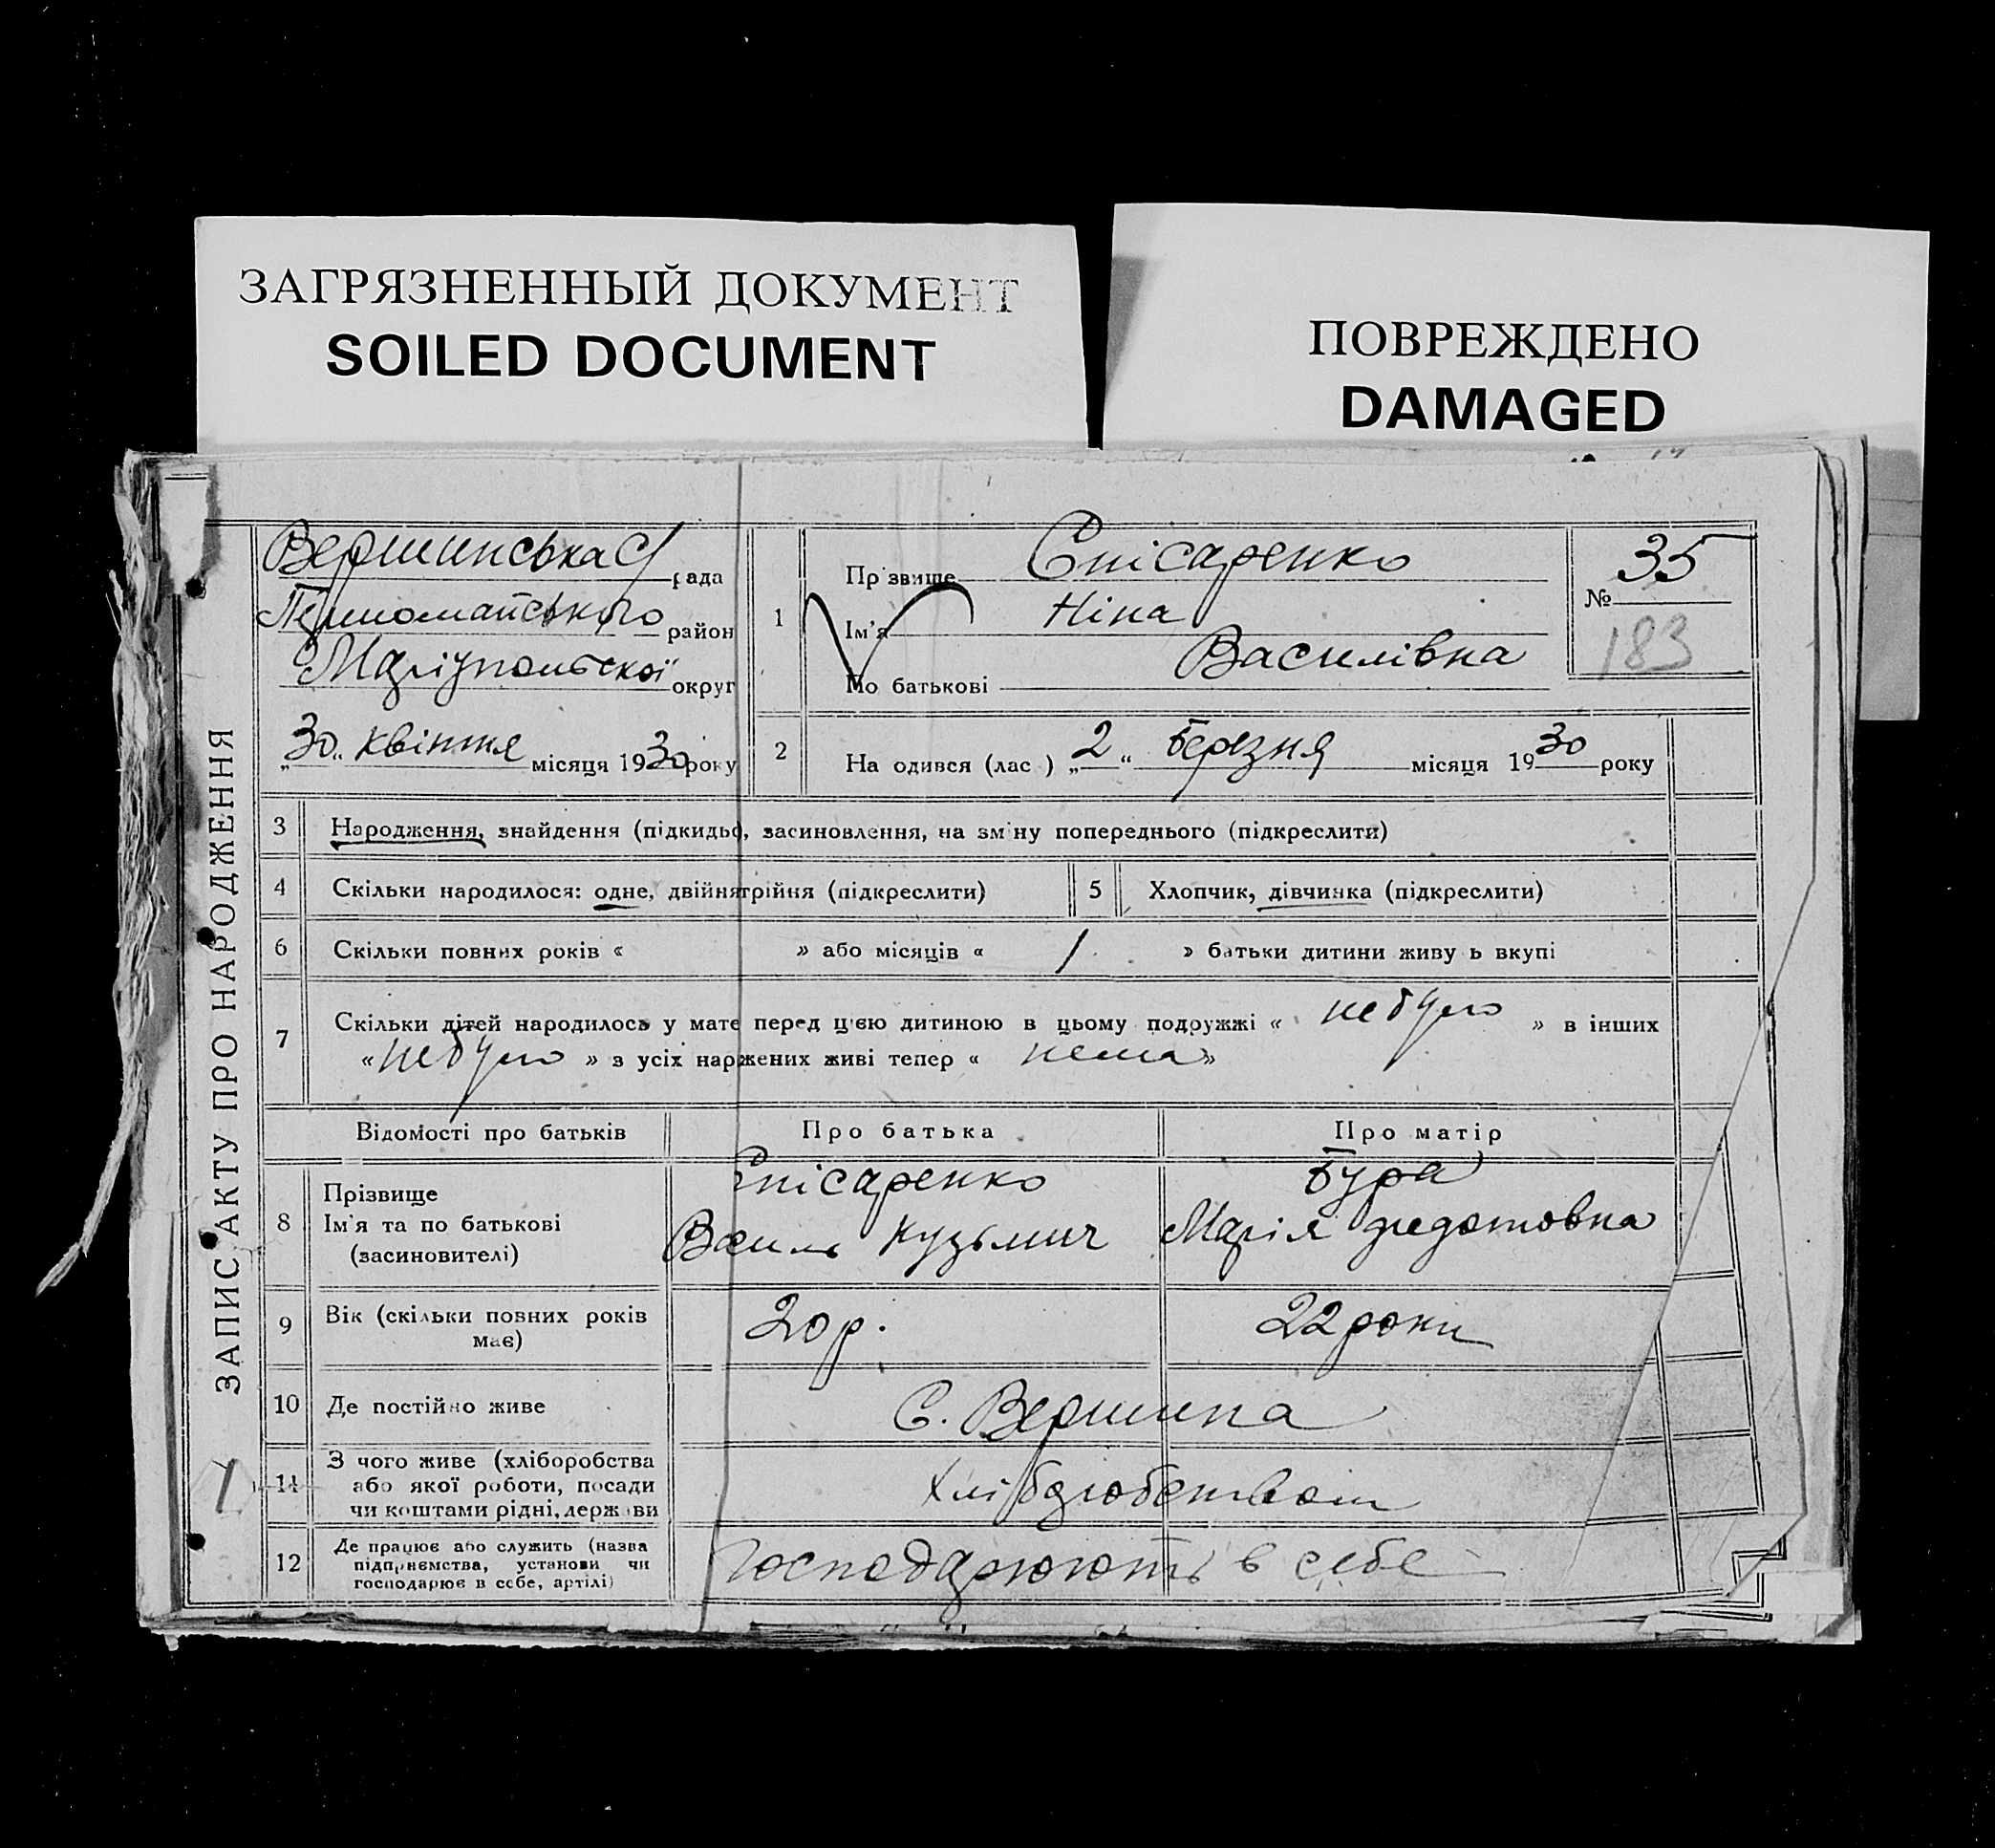 ЗАГРЯЗНЕННЫЙ ДОКУМЕНТ
SOILED DOCUMENT
ПОВРЕЖДЕНО
DAMAGED
ЗАПИС АКТУ ПРО НАРОДЖЕННЯ
Вершинська с/рада
Першомайського район
Маріупольської округ
„30“ квітня місяця 1930 року
1
Прізвище Єпісаренко
Ім'я Ніна
По батькові Василівна
№ 35
183
2 На одився (лас ) „2“ березня місяця 1930 року
3 Народження, знайдення (підкидьо, засиновлення, на зміну попереднього (підкреслити)
4 Скільки народилося: одне, двійнятрійня (підкреслити)
5 Хлопчик, дівчинка (підкреслити)
6 Скільки повних років « » або місяців « / » батьки дитини живу ь вкупі
7 Скільки дітей народилось у мате перед цією дитиною в цьому подружжі « не було » в інших
« не було » з усіх наржених живі тепер « нема »
Відомості про батьків Про батька Про матір
8 Прізвище
Ім'я та по батькові
(засиновителі)
Єпісаренко
Василь Кузьмич
Бура
Марія Федотовна
9 Вік (скільки повних років
має)
20 р. 22 роки
10 Де постійно живе С. Вершина
11 З чого живе (хліборобства
або якої роботи, посади
чи коштами рідні, держ ви
12 Де працює або служить (назва
підприємства, установи чи
господарює в себе, артілі)
Господарюють в себе